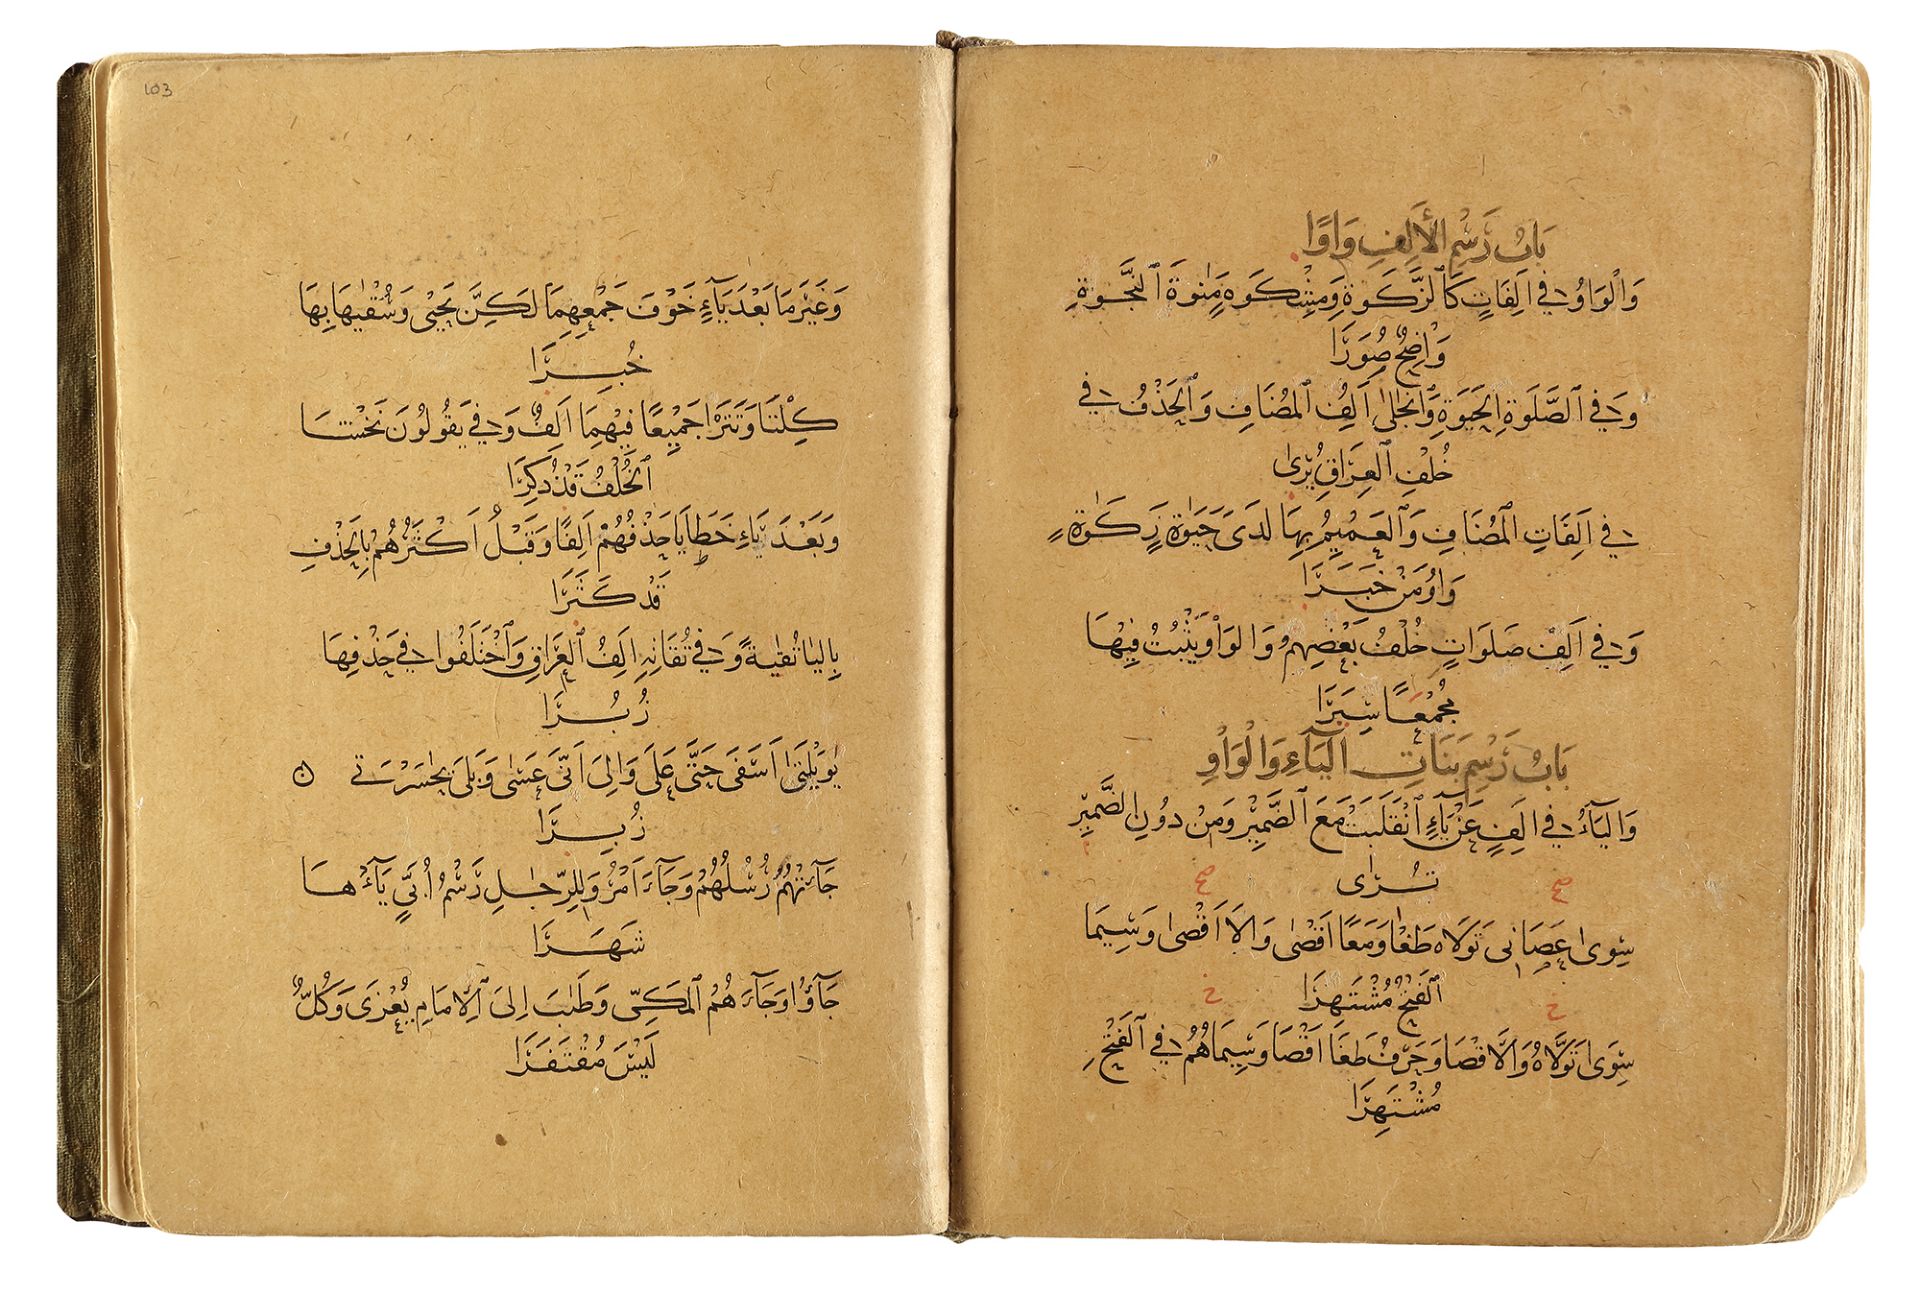 بَابُ رَسْمِ الأَلِفِ وَاوًا
وَالْوَاوُ فِي اَلِفَاتٍ كَالزَّكَوةِ وَمِشْكَوةٍ مَنٰوةَ النَّجَوةِ
وَاضِحٌ صُوَرَا
وَفِي الصَّلَوةِ الْحَيَوةِ وَانْجَلٰى اَلِفُ الْمُضَافِ وَالْحَذْفُ فِي
خُلْفِ الْعِرَاقِ يُرٰى
فِي اَلِفَاتِ الْمُضَافِ وَالْعَمِيمُ بِهَا لَدَى حَيٰوةٍ زَكٰوةٍ
وَاوُ مَنْ خَبَرَا
وَفِي اَلِفْ صَلَوَاتٍ خُلْفُ بَعْضِهِمُ وَالْوَاوُ يَثْبُتُ فِيْهَا
مُجْمَعًا سِيَرَا
بَابُ رَسْمِ بَنَاتِ الْيَآءِ وَالْوَاوِ
وَالْيَآءُ فِي اَلِفٍ عَنْ يَآءٍ انْقَلَبَتْ مَعَ الضَّمِيْرِ وَمِنْ دُونِ الضَّمِيْرِ
تُرٰى
صح صح
سِوٰى عَصَانِى تَوَلَّاهُ طَغَا وَمَعًا اَقْصٰى وَالْاَقْصٰى وَسِيْمَا
الْفَتْحِ مُشْتَهِرَا
خ خ
سِوَى تَوَلَّاهُ وَالْاَقْصَا وَحَرْفُ طَغَا اَقْصَا وَسِيمَاهُمُ فِي الْفَتْحِ
مُشْتَهِرَا
103
وَغَيْرَ مَا بَعْدَ يَآءٍ خَوْفَ جَمْعِهِمَا لَكِنَّ يَحْيٰى وَسُقْيٰهَا بِهَا
حُبِّرَا
كِلْتَا وَتَتْرَا جَمِيْعًا فِيْهِمَا اَلِفٌ وَفِي يَقُولُونَ نَخْشٰا
الْخُلْفُ قَدْ ذُكِرَا
وَبَعْدَ يَاءِ خَطَايَا حَذْفُهُمْ اَلِفًا وَقَبْلُ اَكْثَرُهُمْ بِالْحَذْفِ
قَدْ كَثَرَا
بِالْيَا تُقٰيةً وَفِي تُقَاتِهِ اَلِفُ الْعِرَاقِ وَاخْتَلَفُوا فِي حَذْفِهَا
زُبُرَا
يٰوَيْلَتٰى اَسَفَى حَتَّى عَلَى وَاِلَى اَنّٰى عَسٰى وَبَلٰى يٰحَسْرَتٰى
زُبِرَا
جَآءَتْهُمُ رُسْلُهُمْ وَجَآءَ اَمْرُ وَلِلرِّجَالِ رَسْمُ اُبَيٍّ يَآءُهَا
شَهَرَا
جَآؤُا وَجَآءَ هُمُ الْمَكِّى وَطَابَ اِلَى الْاِمَامِ يُعْزَى وَكُلٌّ
لَيْسَ مُقْتَفَرَا